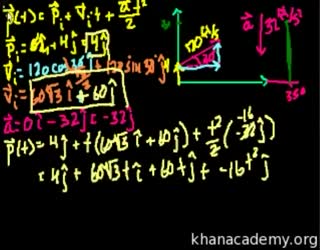 p⃗(t) = p⃗ᵢ + v⃗ᵢt + a⃗t²/2
p⃗ᵢ = 0î + 4ĵ = 4ĵ
v⃗ᵢ = 120 cos 30° î + 120 sin 30° ĵ
v⃗ᵢ = 60√3 î + 60ĵ
a⃗ = 0î - 32ĵ = -32ĵ
p⃗(t) = 4ĵ + t(60√3 î + 60ĵ) + t²/2 (-32ĵ) -16
= 4ĵ + 60√3 t î + 60tĵ + -16t² ĵ
120 ft/s
a⃗ 32 ft/s²
350
khanacademy.org